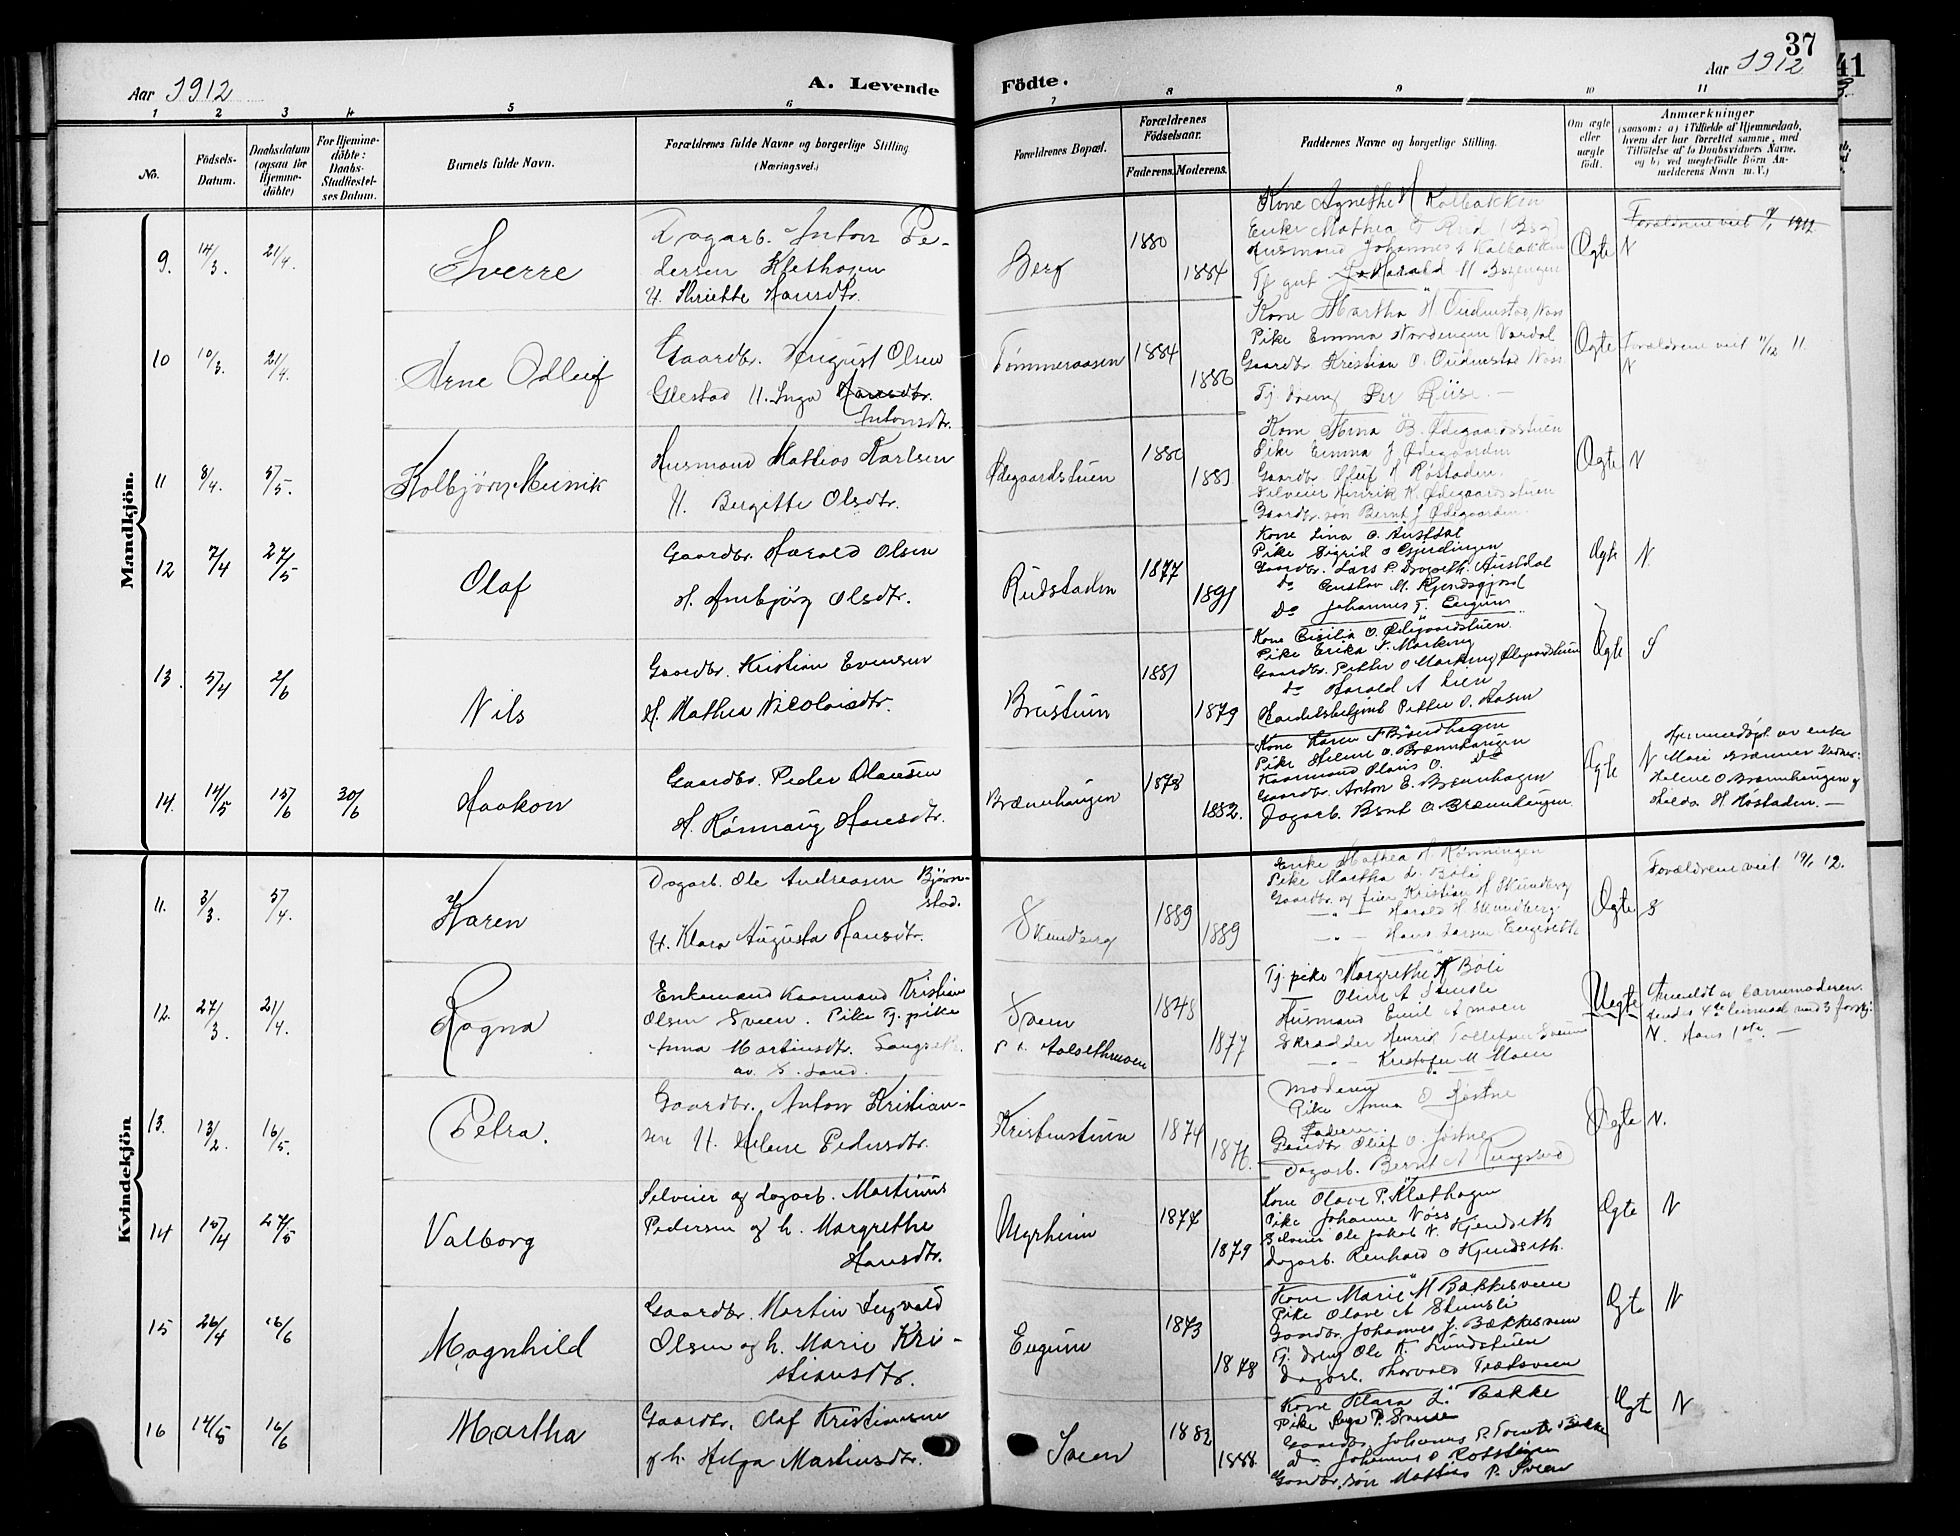 Aar 1912
A. Levende
Födte.
Aar 1912
37
41
1 2 3 4 5 6 7 8 9 10 11
No.
Födsels-
Datum.
Daabsdatum
(ogsaa for
Hjemme-
döbte)
For Hjemme-
döbte:
Daabs-
Stadfæstel-
ses Datum.
Barnets fulde Navn.
Forældrenes fulde Navne og borgerlige Stilling
(Næringsvei.)
Forældrenes Bopæl.
Forældrenes
Födselsaar.
Faderens.
Moderens.
Faddernes Navne og borgerlige Stilling.
Om ægte
eller
uægte
født.
Anmærkninger
(saasom: a) i Tilfælde af Hjemmedaab,
hvem der har forrettet samme, med
Tilföielse af to Daabsvidners Navne,
og b) ved uægtefödte Börn An-
melderens Navn m. V.)
Mandkjön.
9. 14/3. 21/4. Sverre
Dagarb. Anton Pe-
dersen Klethagen
H. Hansdtr.
Berg 1880 1884
Kone Agnethe H Kolbakken
Enke Mathea
Husmand Johannes Kolbakken
Harald H
Ægte N
Forældrene viet 1912
10 10/3. 21/4. Arne Odleif
Gaardbr. August Olsen
H. Inga Hansdtr.
Antonsdtr.
Tømmeraasen 1884 1886
Kone Martha H
Pike Emma Nordengen Vardal
Gaardbr Kristian O.
Tj. dreng Per Riise. —
Ægte Forældrene viet 11.
N
11 8/4. 5/5. Kolbjörn Meinik
Husmand Mathias Karlsen
H. Bergitte Olsdtr.
Ødegaardstuen 1880
Kone B. Ødegaardsstuen
Pike Emma J Ødegaarden
Gaardbr Oleif H Røstaden.
Selveier Henrik K. Ødegaardsstuen
Gaardbr. søn Bernt J Ødegaarden
Ægte N
12 7/4 27/5 Olaf
Gaardbr. Harald Olsen
H. Ambjörg Olsdtr.
Rudstaden 1877 1891
Kone Lina O. Austdal
Pike Sigrid O Gjerdingen
Gaardbr. Lars P. Austdal
do Gustav M.
do Johannes T. Engum
Ægte N.
13. 5/4 2/6 Nils
Gaardbr. Kristian Evensen
H. Mathea Nicolaisdtr.
Brustuen 1881 1879
Kone Cisilia O. Ødegaardstuen.
Pike Erika
Gaardbr. Petter O Ødegaardstuen
do Harald A Lien
Handelsbetjent Petter O.
Ægte S
14. 14/5 16/6 30/6 Haakon
Gaardbr. Peder Olausen
H. Rönnaug Hansdtr.
Brænnhaugen 1878 1882.
Kone Karen
Pike Helene O. Brænnhaugen
Olaus O. do
Gaardbr. Anton E. Brænnhagen
Dagarb. Bernt O Brænnhaugen
Ægte N
Hjemmedöpt av enke
Mari
Helene O Brænnhaugen og
Hilda H. Røstaden. —
Kvindekjön
11. 3/3. 5/4. Karen
Dagarb. Ole Andreasen Björn-
stad.
H. Klara Augusta Hansdtr.
Skundberg 1889 1889
Enke Mathea H. Rønningen
Pike Martha L. Boli
Gaardbr. og eier Kristian H Skundberg
— " — Harald H Skundberg
— " — Hans Larsen Engeseth
Ægte S
Forældrene viet 19/1 12.
12. 27/3. 21/4. Ragna
Enkemand Kaarmand Kristian
Olsen Sveen. Pike Tj. pike
Anna Martinsdtr.
av S. Land.
Sveen 1848 1877
Tj. pike Margrethe H Boli
Oline A
Husmand Emil A Moen
Skrædder Henrik Tollefsen Sveum
— " — Kristofer M Moen
Uegte
Anmeldt av barnemoderen
N. Hans 1ste. —
13. 13/2. 16/5. Petra.
Gaardbr. Anton Kristian-
sen H. Helene Pedersdtr.
Kristenstuen 1874 1876.
Moderen
Pike Anna O Jøstne
Faderen.
Gaardbr Oleif O. Jøstne
Dagarb. Bernt A Ringstad
Ægte N.
14 15/4 27/5 Valborg
Selveier og dagarb. Martinus
Pedersen og h. Margrethe
Hansdtr.
Myrheim 1877 1879
Kone Olave P. Klæthagen
Pike Johanne Voss
Selveier Ole Jakob N. Kjendseth
Dagarb. Renhard O Kjendseth.
Ægte N
15 26/4 16/6 Magnhild
Gaardbr. Martin Ingvald
Olsen og h. Marie Kri-
stiansdtr.
Engum 1873 1878
Kone Marie M Bakkesveen
Pike Olave A
Gaardbr. Johannes J. Bækkesveen
Tj. dreng Ole K. Lundstuen
Dagarb. Thorvald
Ægte N
16 14/5 16/6 Martha
Gaardbr. Olaf Kristiansen
og h. Helga Martinsdtr.
Sveen 1882 1888
Kone Klara L. Bakke
Pike Inga P. Sveen
Gaardbr. Johannes P. Bakke
do Johannes O
Gaardbr. søn Mattias P. Sveen
Ægte N